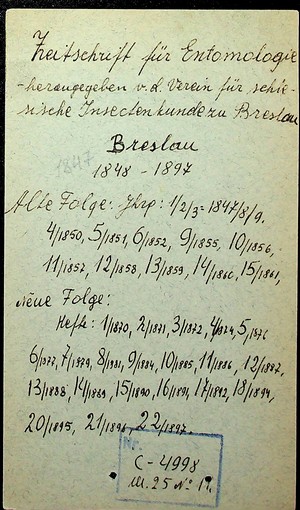 Zeitschrift für Entomologie
-herausgegeben v. d. Verein für schle-
sische Insectenkunde zu Breslau
Breslau
1847
1848 - 1897
Alte Folge: Jhrg: 1/2/3=1847/8/9.
4/1850, 5/1851, 6/1852, 9/1855, 10/1856,
11/1857, 12/1858, 13/1859, 14/1860, 15/1861,
Neue Folge:
Hefte: 1/1870, 2/1871, 3/1872, 4/1874, 5/1876
6/1877, 7/1879, 8/1881, 9/1884, 10/1885, 11/1886, 12/1887,
13/1888, 14/1889, 15/1890, 16/1891, 17/1892, 18/1894,
20/1895, 21/1896, 22/1897.
Nr.
C-4998
III. 25 No 1